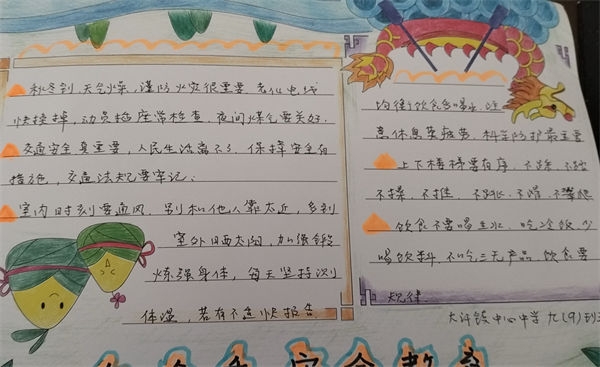 秋冬到,天气燥,谨防火灾很重要,老化电线
快换掉,动员检查常检查,夜间煤气要关好.
交通安全真重要,人民生活离不了,保障安全有
措施,交通法规要牢记.
室内时刻要通风,别和他人靠太近,多到
室外晒太阳,加强锻
炼强身体,每天坚持测
体温,若有不适快报告
均衡饮食多喝水,注
意休息莫疲劳,科学防护最重要
上下楼梯要有序,不
不挤,不推,
饮食不要喝生水,吃冷饮,少
喝饮料,不吃三无产品,饮食要
规律.
中心中学九(9)班
安全教育